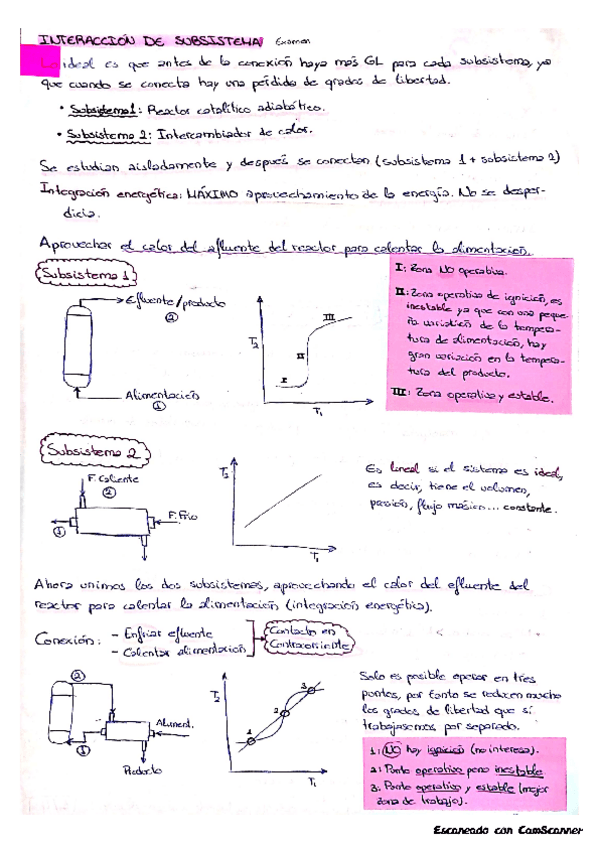 INTERACCIÓN DE SUBSISTEMA Examen
Lo ideal es que antes de la conexión haya más GL para cada subsistema, ya
que cuando se conecta hay una pérdida de grados de libertad.
• Subsistema 1: Reactor catalítico adiabático.
• Subsistema 2: Intercambiador de calor.
Se estudian aisladamente y después se conectan (subsistema 1 + subsistema 2)
Integración energética: MÁXIMO aprovechamiento de la energía. No se desper-
dicia.
Aprovechar el calor del efluente del reactor para calentar la alimentación.
Subsistema 1
Efluente/producto
②
Alimentación
①
T2
I
II
III
T1
I: Zona NO operativa.
II: Zona operativa de ignición, es
inestable ya que con una peque-
ña variación de la tempera-
tura de alimentación, hay
gran variación en la tempera-
tura del producto.
III: Zona operativa y estable.
Subsistema 2
F. Caliente
②
F. Frío
①
T2
T1
Es lineal si el sistema es ideal,
es decir, tiene el volumen,
presión, flujo másico... constante.
Ahora unimos los dos subsistemas, aprovechando el calor del efluente del
reactor para calentar la alimentación (integración energética).
Conexión: - Enfriar efluente
- Calentar alimentación
Contacto en
Contracorriente
②
Aliment.
①
Producto
T2
1
2
3
T1
Solo es posible operar en tres
puntos, por tanto se reducen mucho
los grados de libertad que si
trabajásemos por separado.
1: NO hay ignición (no interesa).
2: Punto operativo pero inestable
3: Punto operativo y estable (mejor
zona de trabajo).
Escaneado con CamScanner